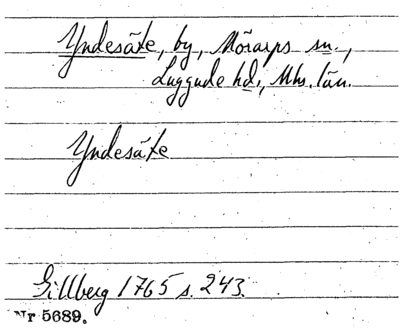 Yndesäte, by, Mörarps sn.,
Luggude hd., Mhs. län.
Yndesäte
Gillberg 1765 s. 243.
Nr 5689.